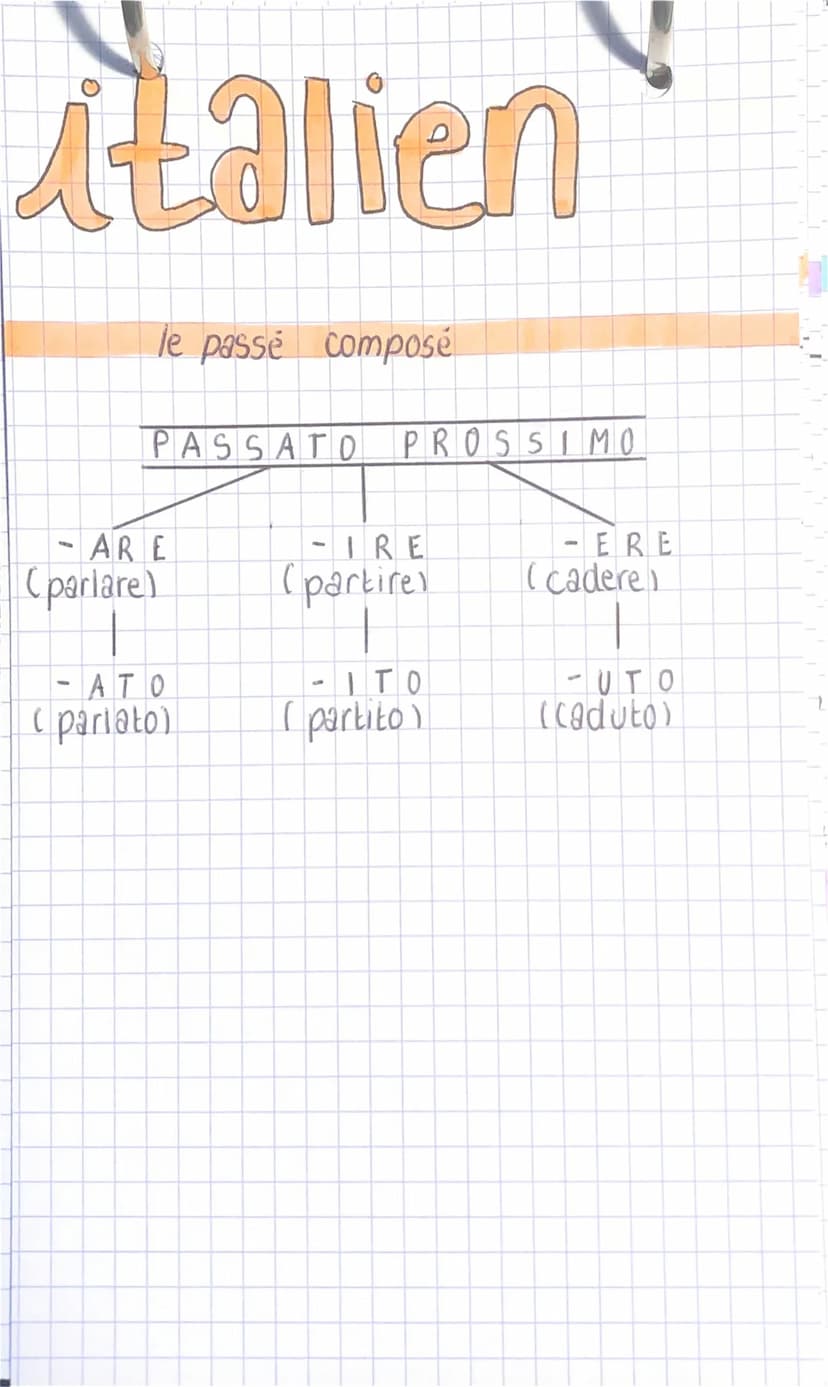 italien
le passé composé
PASSATO PROSSIMO
-ARE -IRE -ERE
(parlare) (partire) (cadere)
-ATO -ITO -UTO
(parlato) (partito) (caduto)